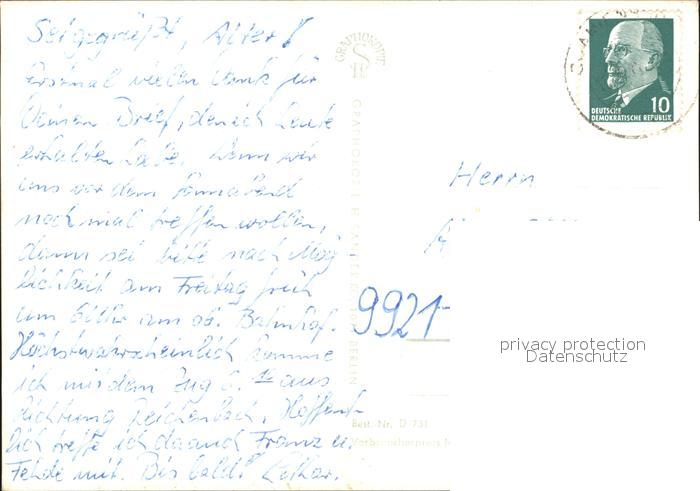 Seigegrüßt, Alter!
Erstmal vielen Dank für
Deinen Brief, den ich heute
erhalten habe. Wenn wir
uns vor dem Sonnabend
noch mal treffen wollen,
dann sei bitte nach Mög-
lichkeit am Freitag früh
um 6 Uhr am ob. Bahnhof.
Höchstwahrscheinlich komme
ich mit dem Zug 6.10 aus
Richtung Reichenbach. Hoffent-
lich treffe ich da auch Franz u.
Fehde mit. Bis bald! Lothar.
GRAPHOKOPIE
GRAPHOKOPIE H. SANDER BERLIN
Best.-Nr. D 731
Verbraucherpreis M
DEUTSCHE
DEMOKRATISCHE REPUBLIK
10
Herrn
9921
privacy protection
Datenschutz